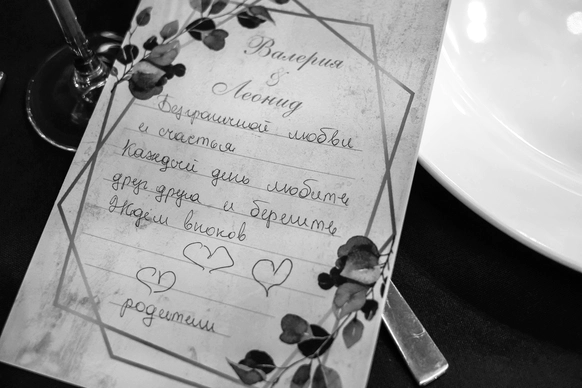 Валерия
&
Леонид
Безграничной любви
и счастья
Каждый день любите
друг друга и берегите
Ждём внуков
родители